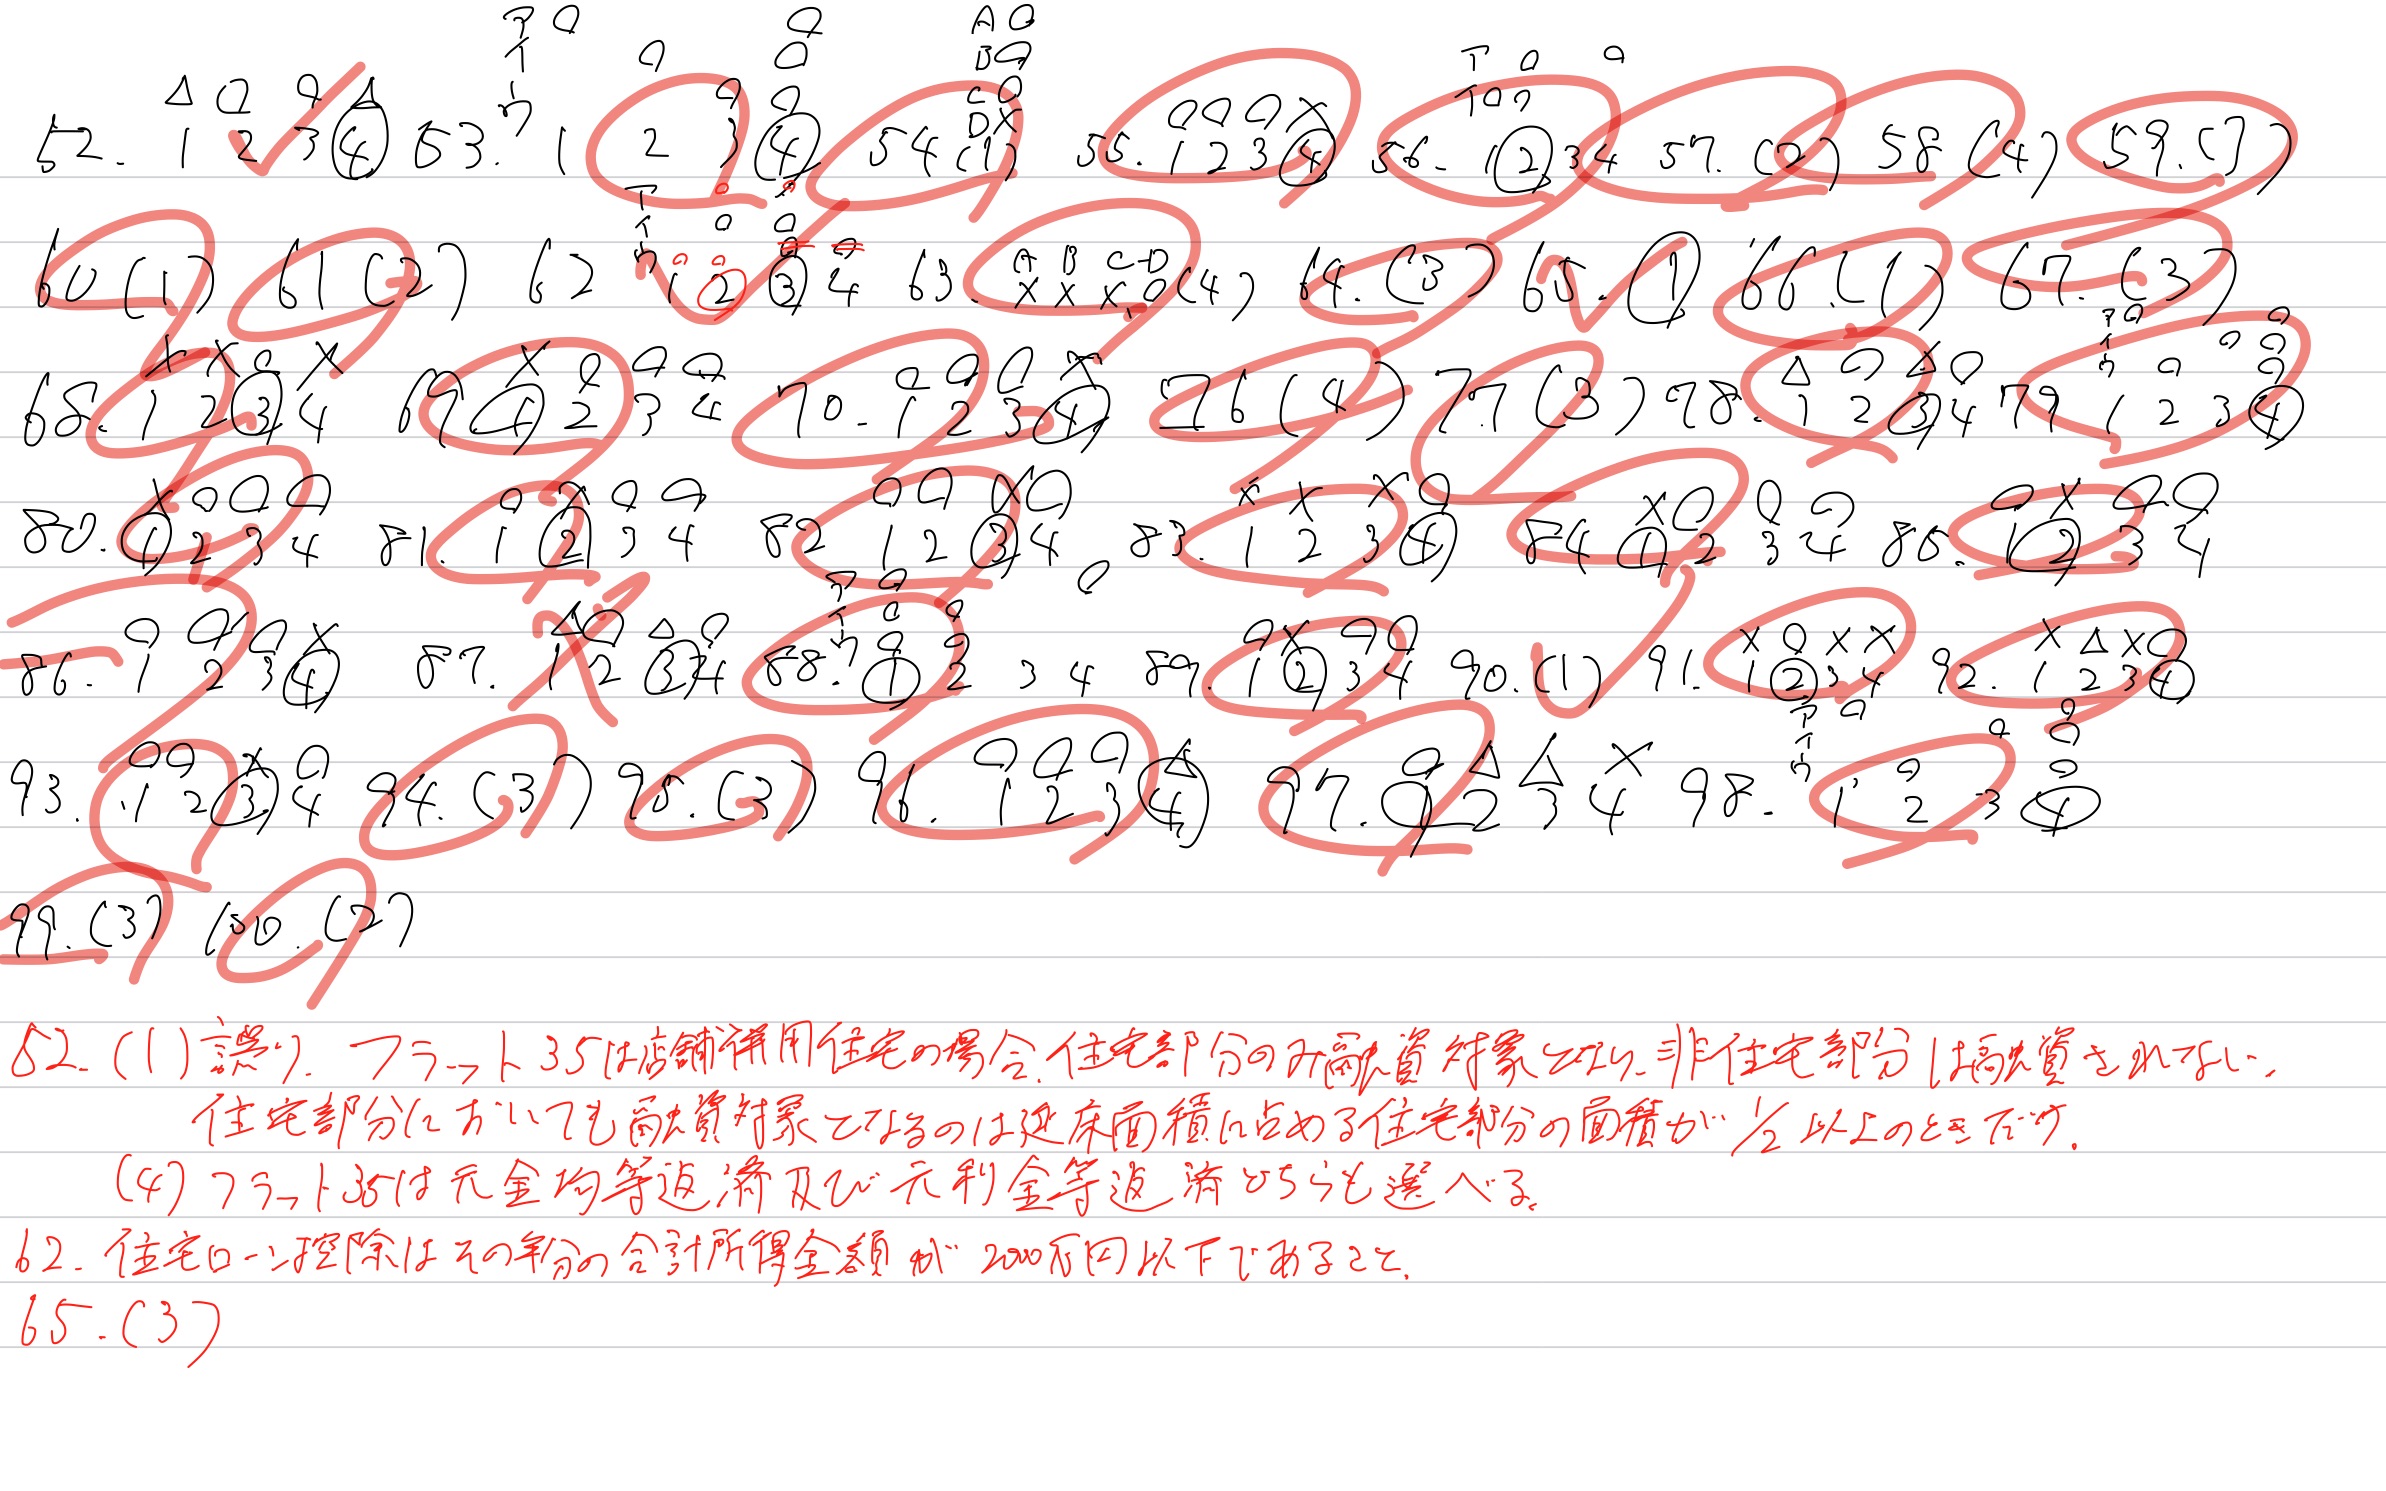 52. 1 2 3 4 53. 1 2 3 4 54 (1) 55. 1 2 3 4 56. 1 2 3 4 57. (2) 58 (4) 59. (3)
60 (1) 61 (2) 62 1 2 3 4 63. A B C D × × × ○ (4) 64. (3) 65. 1 66. (1) 67. (3)
68. 1 2 3 4 69 1 2 3 4 70. 1 2 3 4 76 (4) 77. (3) 78. 1 2 3 4 79 1 2 3 4
80. 1 2 3 4 81. 1 2 3 4 82 1 2 3 4 83. 1 2 3 4 84 1 2 3 4 85. 1 2 3 4
86. 1 2 3 4 87. 1 2 3 4 88. 1 2 3 4 89. 1 2 3 4 90. (1) 91. 1 2 3 4 92. 1 2 3 4
93. 1 2 3 4 94. (3) 95. (3) 96. 1 2 3 4 97. 1 2 3 4 98. 1 2 3 4
99. (3) 100. (2)
52. (1) 誤り. フラット35は店舗併用住宅の場合、住宅部分のみ融資対象となり、非住宅部分は融資されてない.
住宅部分においても融資対象となるのは延床面積に占める住宅部分の面積が1/2以上のときだけ.
(4) フラット35は元金均等返済及び元利金等返済どちらも選べる。
62. 住宅ローン控除はその年分の合計所得金額が2000万円以下であること.
65. (3)